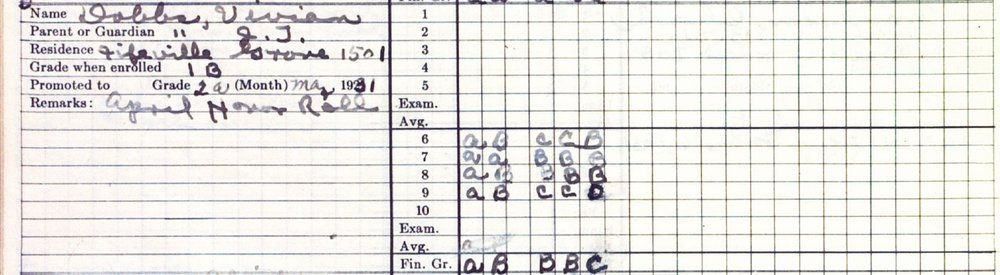 Name Dobbs, Vivian
Parent or Guardian " J. T.
Residence Fifeville Grove 1501
Grade when enrolled 1 B
Promoted to Grade 2a (Month) May 1931
Remarks: April Honor Roll
Fin. Gr.
1
2
3
4
5
Exam.
Avg.
6 a B C C B
7 a a B B B
8 a B B B B
9 a B C C D
10
Exam.
Avg. a
Fin. Gr. a B B B C